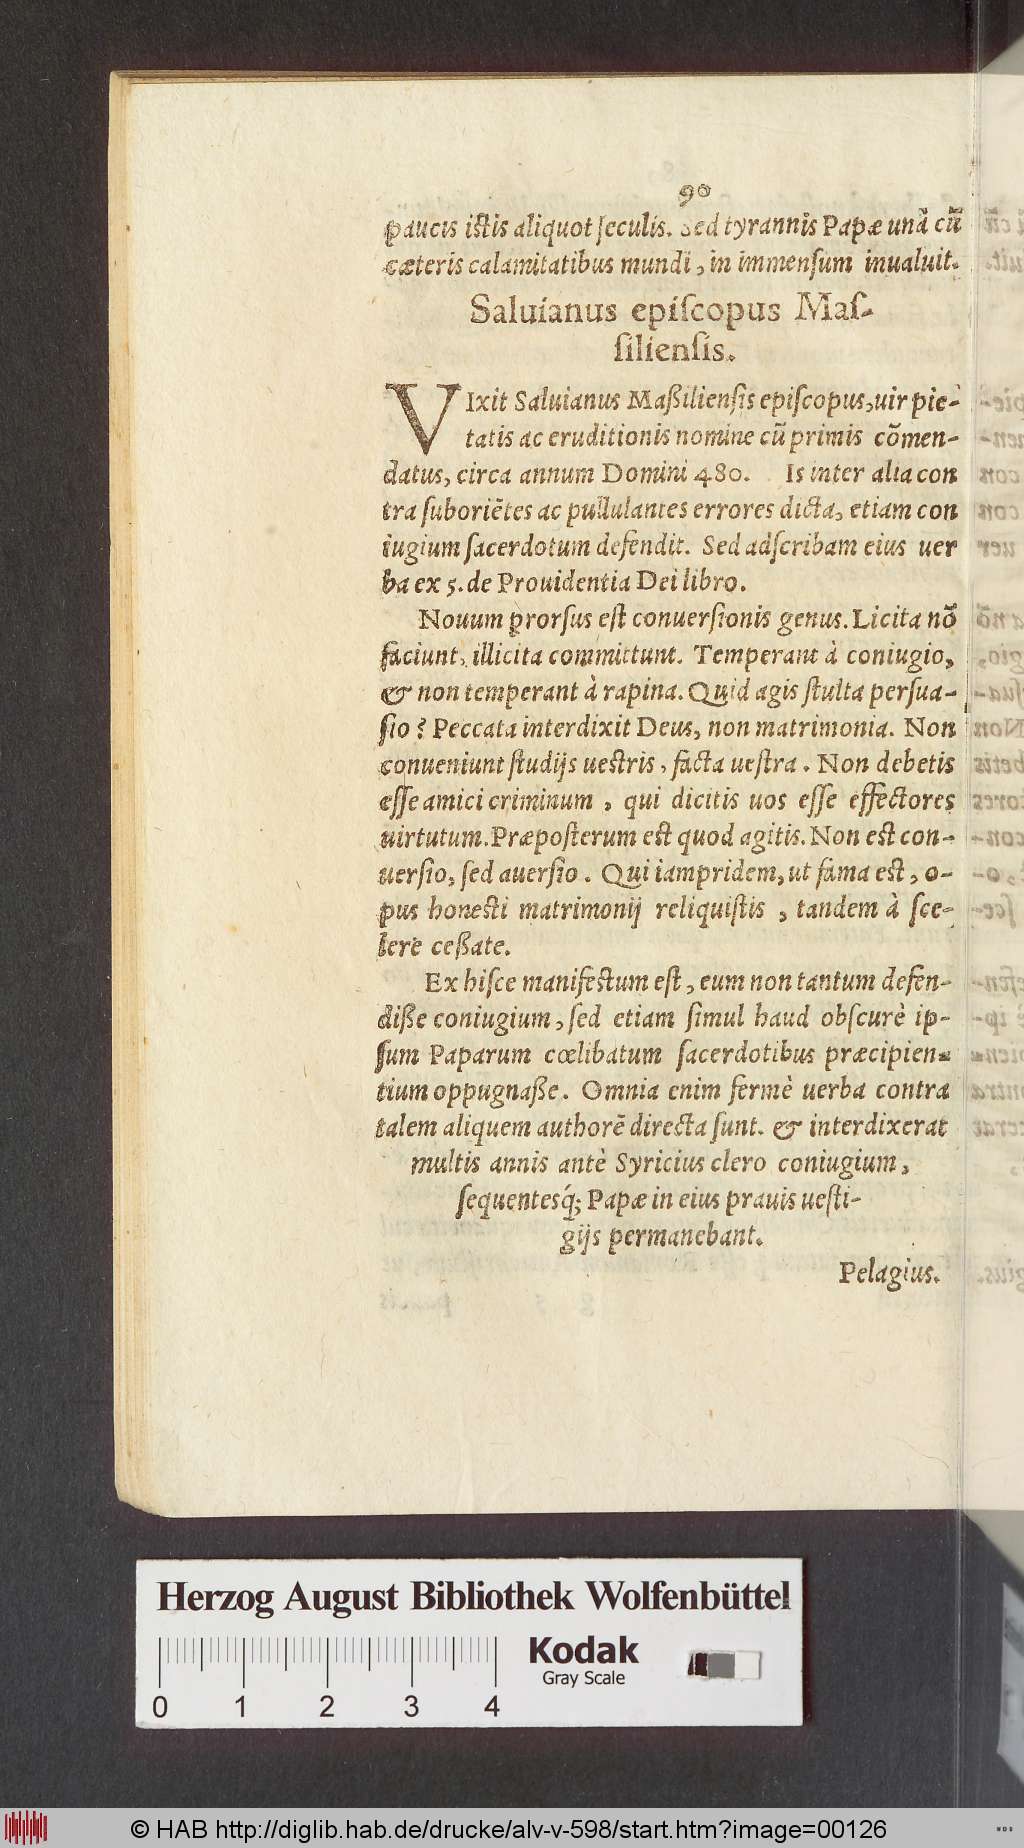 90
paucis iſtis aliquot ſeculis. Sed tyrannis Papæ unã cũ
cæteris calamitatibus mundi, in immenſum inualuit.
Saluianus epiſcopus Maſ-
ſilienſis.
VIxit Saluianus Maßilienſis epiſcopus, uir pie-
tatis ac eruditionis nomine cũ primis cõmen-
datus, circa annum Domini 480. Is inter alia con
tra ſuboriẽtes ac pullulantes errores dicta, etiam con
iugium ſacerdotum defendit. Sed adſcribam eius uer
ba ex 5. de Prouidentia Dei libro.
Nouum prorſus eſt conuerſionis genus. Licita nõ
faciunt, illicita committunt. Temperant à coniugio,
& non temperant à rapina. Quid agis ſtulta perſua-
ſio? Peccata interdixit Deus, non matrimonia. Non
conueniunt ſtudijs ueſtris, facta ueſtra. Non debetis
eſſe amici criminum, qui dicitis uos eſſe effectores
uirtutum. Præpoſterum eſt quod agitis. Non eſt con-
uerſio, ſed auerſio. Qui iampridem, ut fama eſt, o-
pus honeſti matrimonij reliquiſtis, tandem à ſce-
lere ceßate.
Ex hiſce manifeſtum eſt, eum non tantum defen-
diße coniugium, ſed etiam ſimul haud obſcurè ip-
ſum Paparum cœlibatum ſacerdotibus præcipien-
tium oppugnaße. Omnia enim fermè uerba contra
talem aliquem authorẽ directa ſunt. & interdixerat
multis annis antè Syricius clero coniugium,
ſequentesq́; Papæ in eius prauis ueſti-
gijs permanebant.
Pelagius.
Herzog August Bibliothek Wolfenbüttel
Kodak
Gray Scale
0 1 2 3 4
© HAB http://diglib.hab.de/drucke/alv-v-598/start.htm?image=00126